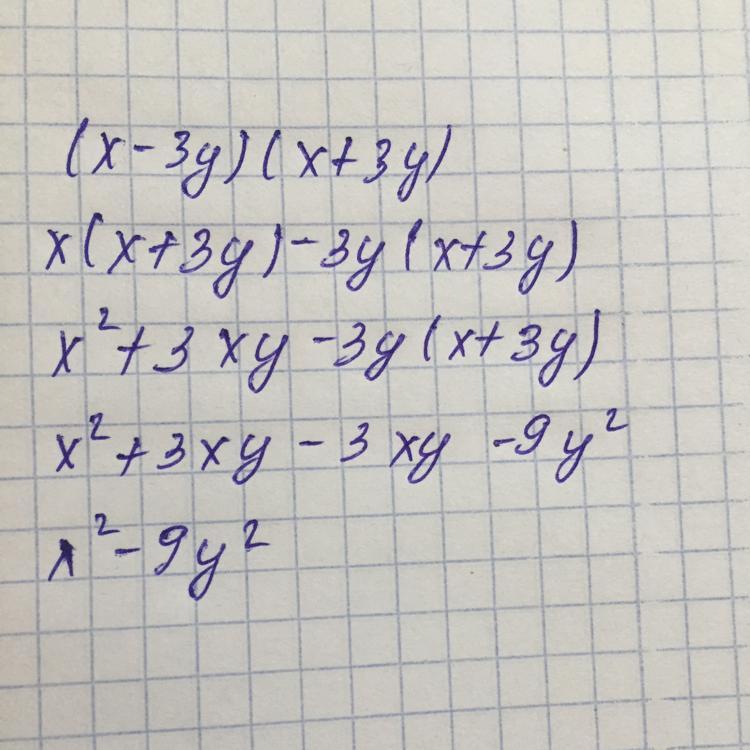 (x-3y)(x+3y)
x(x+3y)-3y(x+3y)
x²+3xy-3y(x+3y)
x²+3xy-3xy-9y²
x²-9y²